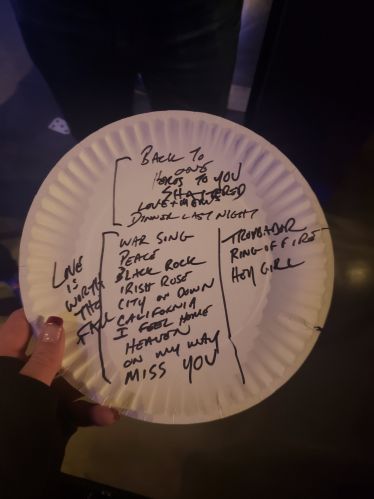 BACK TO
ONE
HERES TO YOU
SHATTERED
LOVE + MEMS
DINNER LAST NIGHT
LOVE
IS
WORTH
THE
FALL
WAR SING
PEACE
BLACK ROCK
IRISH ROSE
CITY ON DOWN
CALIFORNIA
I FEEL HOME
HEAVEN
ON MY WAY
MISS YOU
TROUBADOR
RING OF FIRE
HEY GIRL